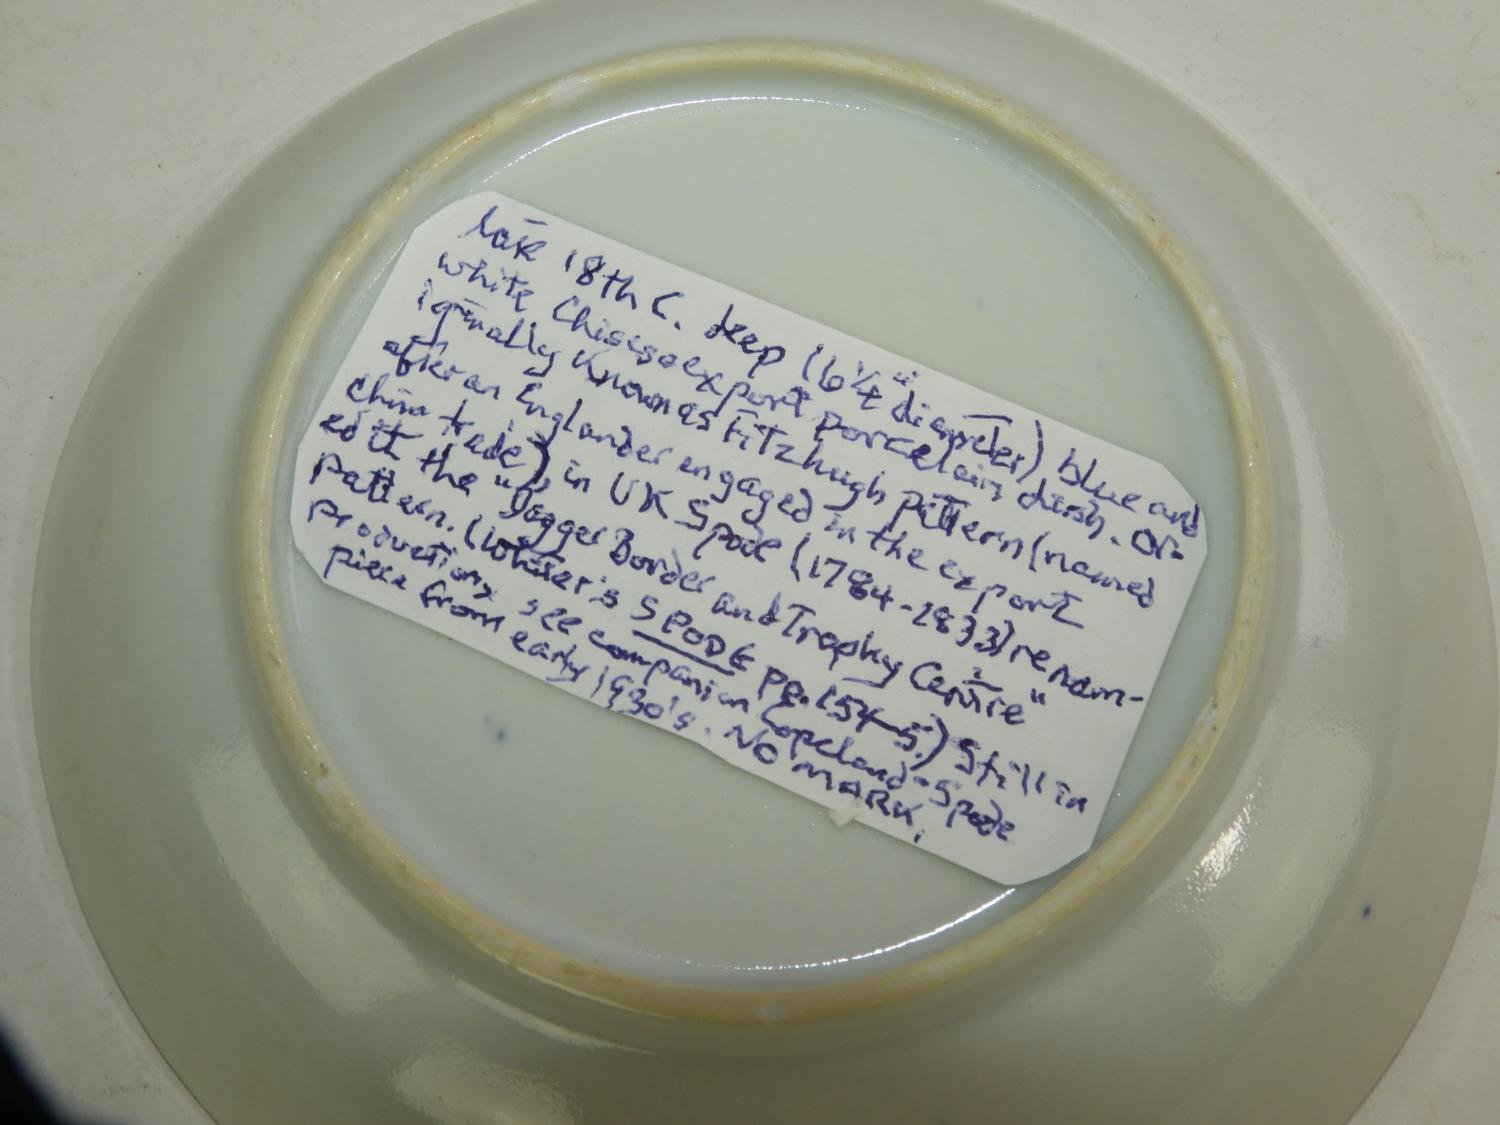 late 18th C. deep (6¼" diameter) blue and
white Chinese export porcelain dish. Or-
iginally known as Fitzhugh pattern (named
after an Englander engaged in the export
China trade) in UK Spode (1784-1833) renam-
ed it the "Dagger Border and Trophy Centre"
pattern. (Whiter's SPODE pg. 154-5.) Still in
production, see companion Copeland-Spode
piece from early 1930's. NO MARK.